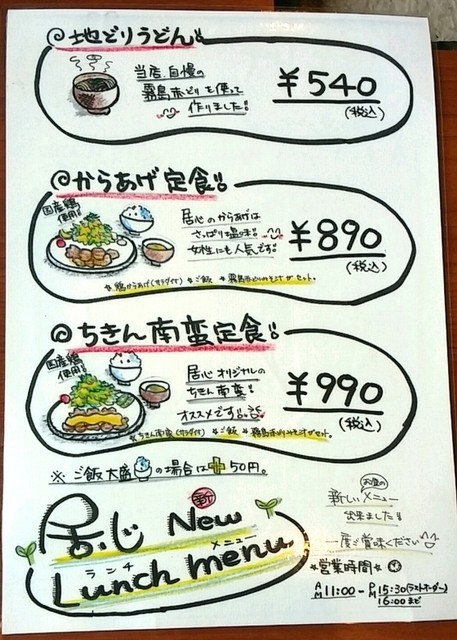 地どりうどん
当店自慢の
霧島赤どりを使って
作りました!!
¥540
(税込)
からあげ定食!!
国産鶏
使用!!
居心のからあげは
さっぱり塩味!!
女性にも人気です
¥890
(税込)
☆鶏からあげ(サラダ付) ☆ご飯 ☆霧島赤どりのみそ汁がセット。
ちきん南蛮定食!!
国産鶏
使用!!
居心オリジナルの
ちきん南蛮
オススメです!!
¥990
(税込)
☆ちきん南蛮(サラダ付) ☆ご飯 ☆霧島赤どりみそ汁がセット。
※ご飯大盛の場合は+50円。
居心 新 New
ランチ メニュー
Lunch menu
お昼の
新しいメニュー
出来ました!!
一度ご賞味ください
☆営業時間☆
AM 11:00 - PM 15:30(ラストオーダー)
16:00まで